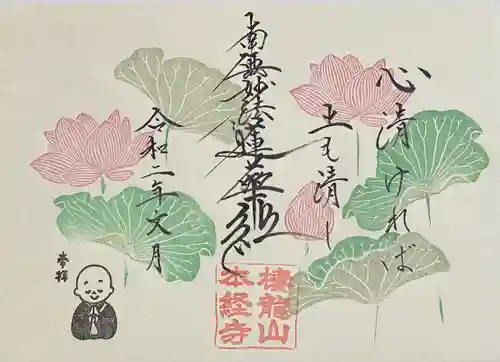 心清ければ
土も清し
南無妙法蓮華経
令和二年文月
奉拝
棲龍山
本経寺